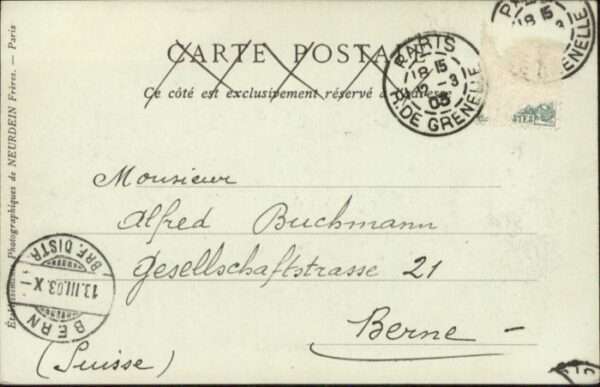 CARTE POSTALE
Ce côté est exclusivement réservé à l'adresse
PARIS
18 15
3
03
R. DE GRENELLE
PA
18 15
3
GRENELLE
Monsieur
Alfred Buchmann
Gesellschaftstrasse 21
Berne
(Suisse)
BERN
13.III.03.X
BRF. DISTR.
Photographiques de NEURDEIN Frères. — Paris